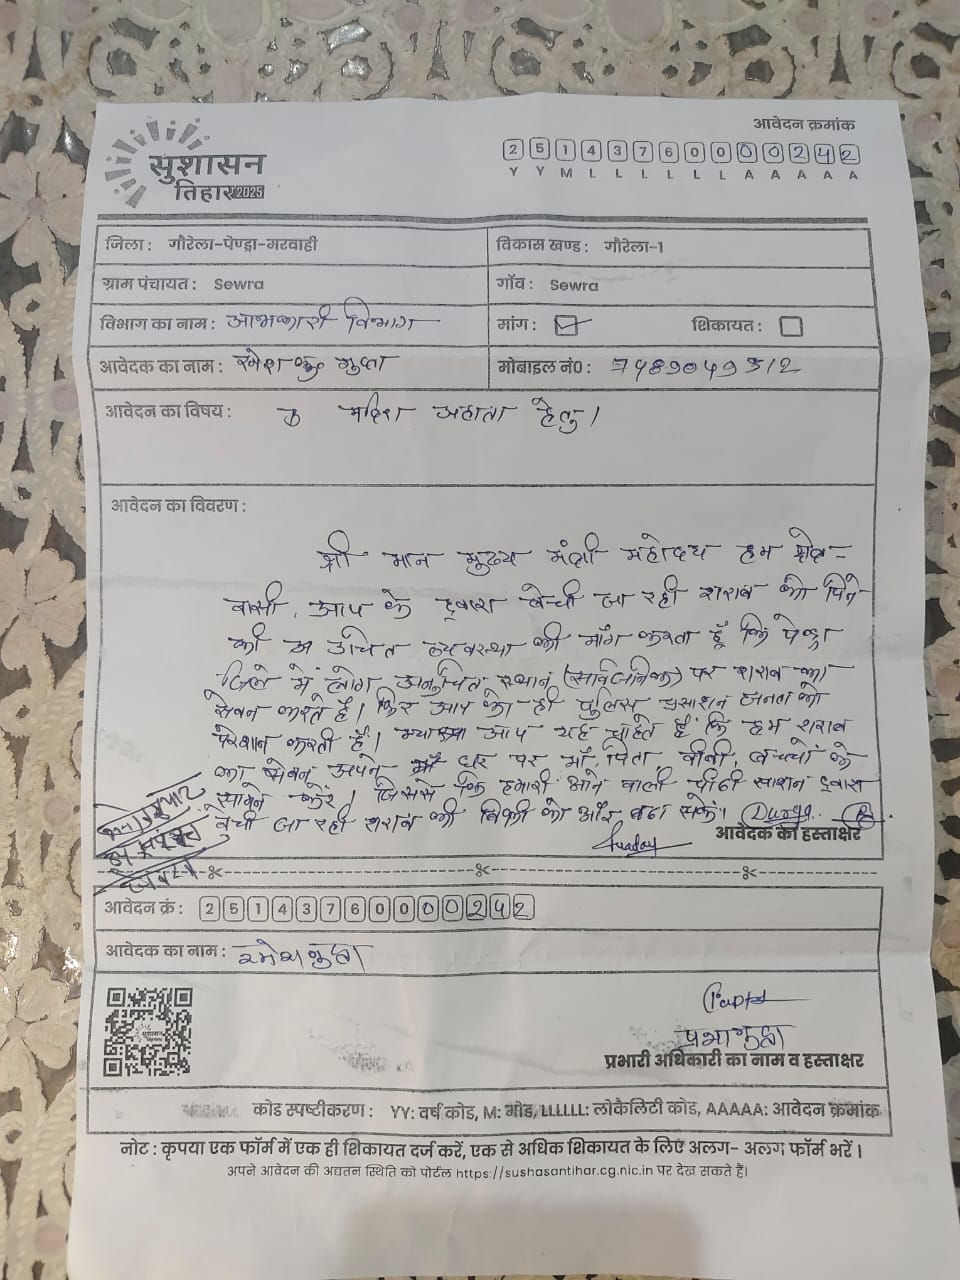 सुशासन
तिहार 2025
आवेदन क्रमांक
2 5 1 4 3 7 6 0 0 0 0 0 2 4 2
Y Y M L L L L L L A A A A A
जिला : गौरेला-पेण्ड्रा-मरवाही
विकास खण्ड : गौरेला-1
ग्राम पंचायत : Sewra
गाँव : Sewra
विभाग का नाम : आबकारी विभाग
मांग : ✓ शिकायत :
आवेदक का नाम : रमेश कु० गुप्ता
मोबाइल नं० :
आवेदन का विषय : मदिरा अहाता हेतु।
आवेदन का विवरण :
श्री मान मुख्य मंत्री महोदय हम क्षेत्र-
वासी, आप के द्वारा बेची जा रही शराब को पिने
की उचित व्यवस्था की माँग करता हूँ कि पेण्ड्रा
जिले में लोग अनुचित स्थान (सार्वजनिक) पर शराब का
सेवन करते हैं। फिर आप की ही पुलिस प्रसाशन जनता को
परेशान करती हैं। क्या आप यह चाहते हैं कि हम शराब
का सेवन अपने घर पर माँ, पिता, बीवी, बच्चों के
सामने करें। जिससे कि हमारी आने वाली पीढी साशन द्वारा
बेची जा रही शराब की बिक्री को और बढा सकें। Durga
आवेदक का हस्ताक्षर
आवेदन क्रं : 2 5 1 4 3 7 6 0 0 0 0 0 2 4 2
आवेदक का नाम : रमेश गुप्ता
सुशासन
प्रभारी अधिकारी का नाम व हस्ताक्षर
कोड स्पष्टीकरण : YY: वर्ष कोड, M: मोड, LLLLLL: लोकैलिटी कोड, AAAAA: आवेदन क्रमांक
नोट : कृपया एक फॉर्म में एक ही शिकायत दर्ज करें, एक से अधिक शिकायत के लिए अलग- अलग फॉर्म भरें।
अपने आवेदन की अद्यतन स्थिति को पोर्टल https://sushasantihar.cg.nic.in पर देख सकते हैं।